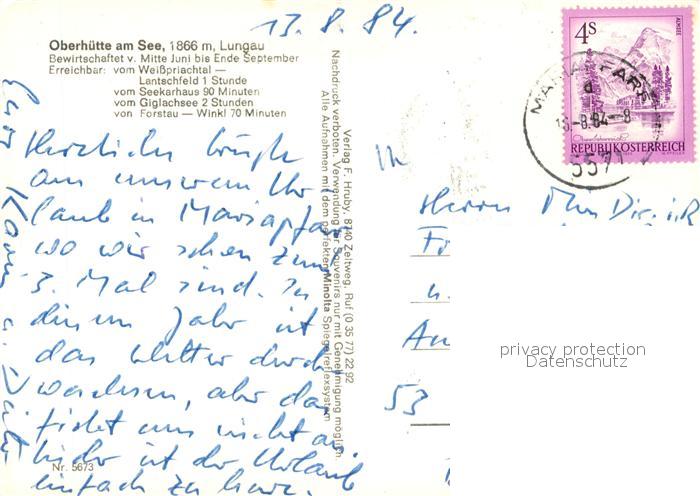 13.8.84.
Oberhütte am See, 1866 m, Lungau
Bewirtschaftet v. Mitte Juni bis Ende September
Erreichbar: vom Weißpriachtal —
Lantschfeld 1 Stunde
vom Seekarhaus 90 Minuten
vom Giglachsee 2 Stunden
von Forstau — Winkl 70 Minuten
Herzliche Grüße
aus unserem Ur
laub in Mariapfarr
wo wir schon zum
3. Mal sind. In
diesem Jahr ist
das Wetter durch
wachsen, aber das
stört uns nicht an
ist der Urlaub
einfach zu kurz.
Nr. 5673
Verlag F. Hruby, 8740 Zeltweg, Ruf (0 35 77) 22 92
Nachdruck verboten! Verwendung für Souvenirs nur mit Genehmigung möglich
Alle Aufnahmen mit dem perfekten Minolta Spiegelreflexsystem
4s
ALMSEE
REPUBLIK ÖSTERREICH
MARIAPFARR
d
-8.84-8
5571
Herrn
u.
An
53
privacy protection
Datenschutz